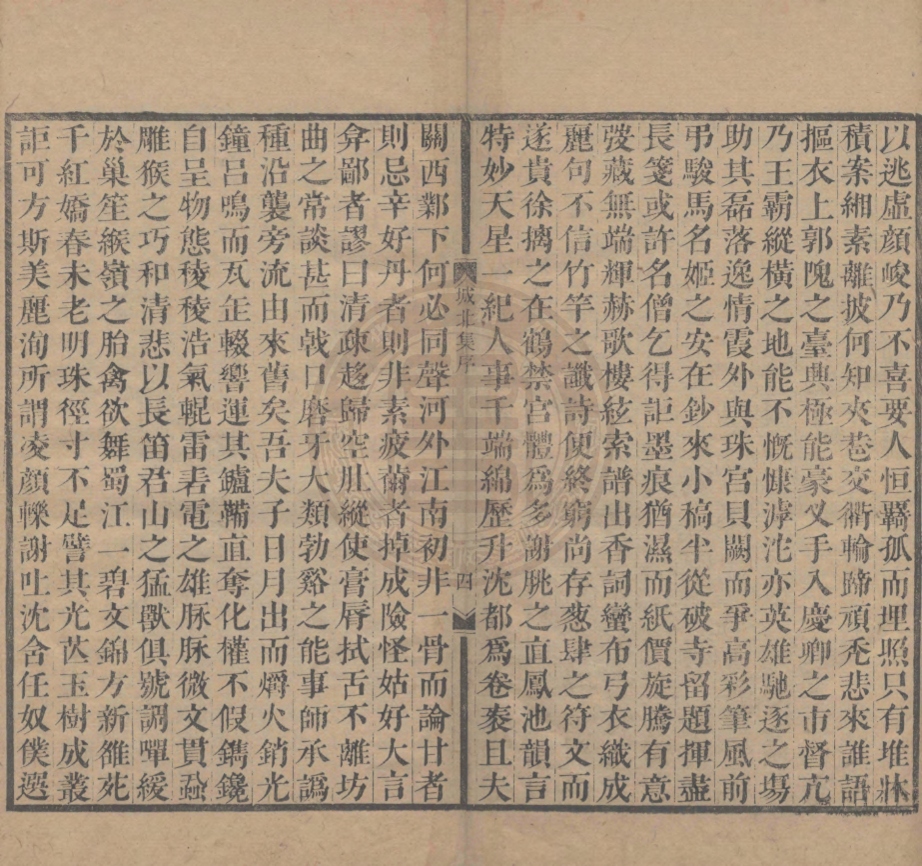 以逃虛顏峻乃不喜要人恒羈孤而理照只有堆牀
積案緗素離披何知夾巷交衢輪蹄頑禿悲來誰語
摳衣上郭隗之臺興極能豪叉手入慶卿之市督亢
乃王霸縱橫之地能不慨慷滹沱亦英雄馳逐之場
助其磊落逸情霞外與珠宮貝闕而爭高彩筆風前
弔駿馬名姬之安在鈔來小稿半從破寺留題揮盡
長箋或許名僧乞得詎墨痕猶濕而紙價旋騰有意
弢藏無端輝赫歌樓絃索譜出香詞蠻布弓衣織成
麗句不信竹竿之讖詩便終窮尚存葱肆之符文而
遂貴徐摛之在鶴禁宮體爲多謝朓之直鳳池韻言
特妙天星一紀人事千端綿歷升沈都爲卷袠且夫
城北集序
四
關西鄴下何必同聲河外江南初非一骨而論甘者
則忌辛好丹者則非素疲薾者掉成險怪姑好大言
弇鄙者謬曰淸疎趍歸空肚縱使膏唇拭舌不離坊
曲之常談甚而戟口磨牙大類勃谿之能事師承譌
種沿襲旁流由來舊矣吾夫子日月出而爝火銷光
鐘呂鳴而瓦缶輟響運其鑪鞴直奪化權不假鐫鑱
自呈物態稜稜浩氣輥雷砉電之雄脉脉微文貫蝨
雕猴之巧和淸悲以長笛君山之猛獸俱號調嘽緩
於巢笙緱嶺之胎禽欲舞蜀江一碧文錦方新雒苑
千紅嬌春未老明珠徑寸不足譬其光芒玉樹成叢
詎可方斯美麗洵所謂凌顏轢謝吐沈含任奴僕選